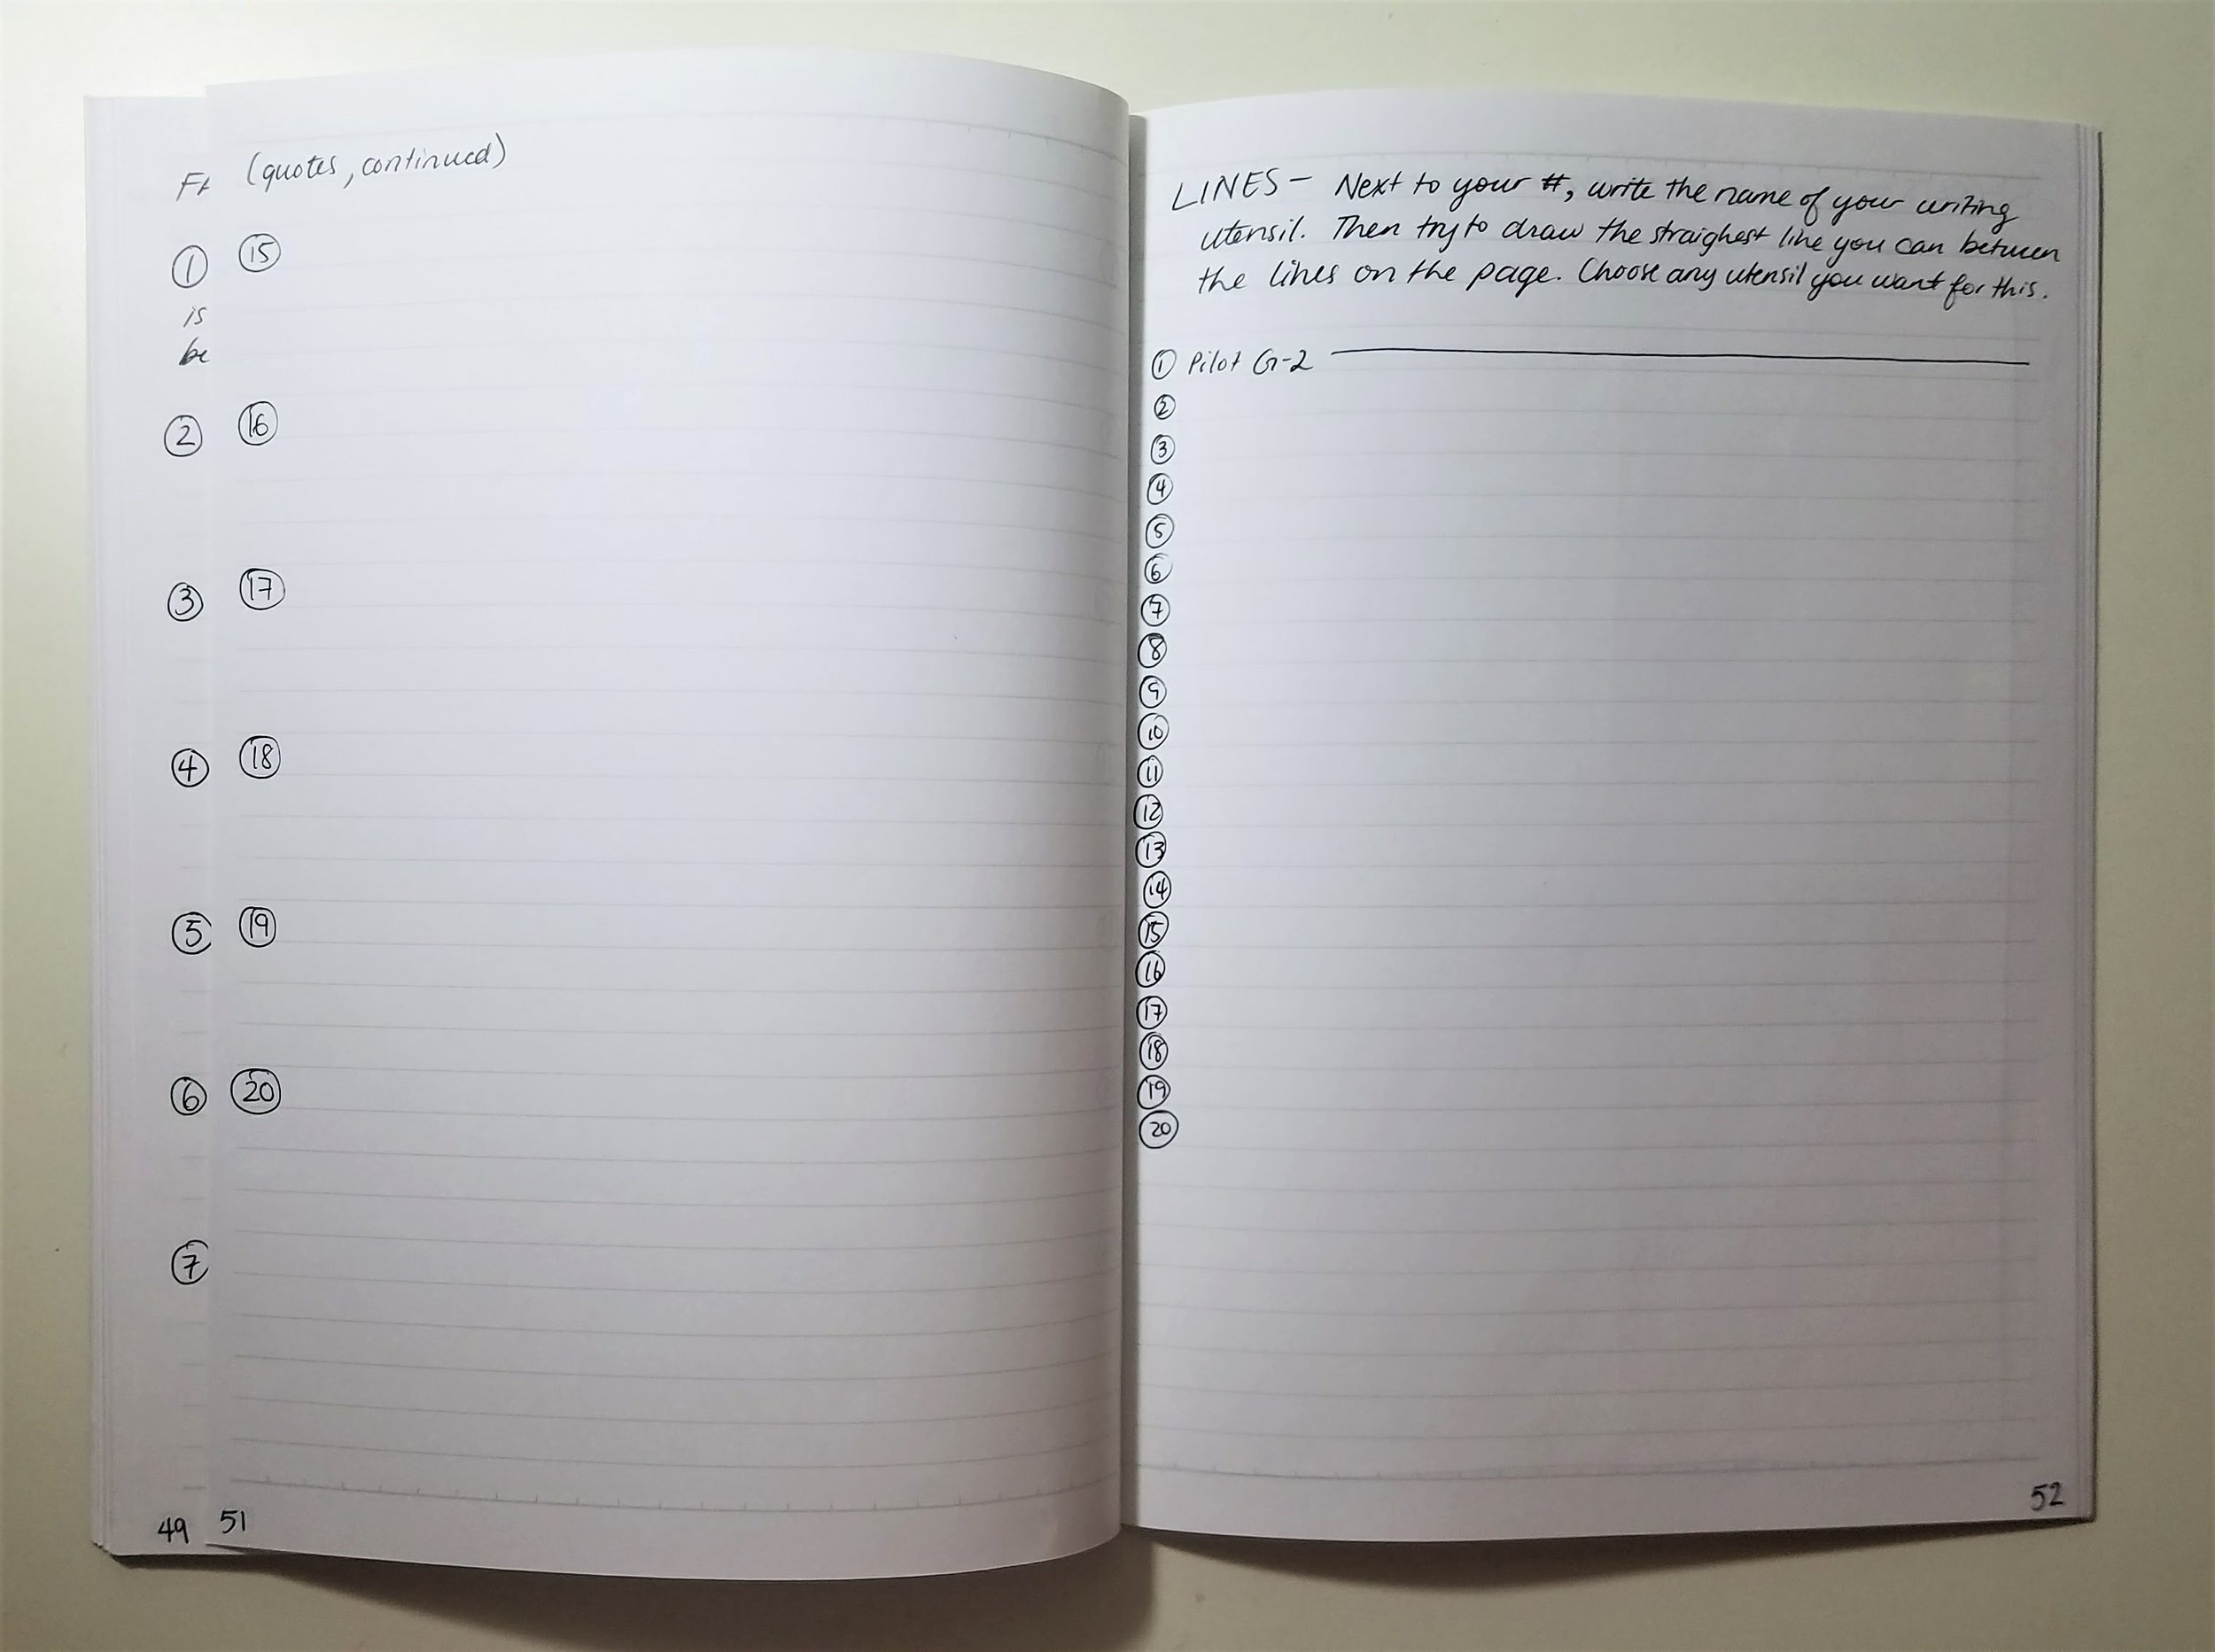 (quotes, continued)
15
16
17
18
19
20
51
1
is
be
2
3
4
5
6
7
49
LINES - Next to your #, write the name of your writing
utensil. Then try to draw the straighest line you can between
the lines on the page. Choose any utensil you want for this.
1 Pilot G-2
2
3
4
5
6
7
8
9
10
11
12
13
14
15
16
17
18
19
20
52